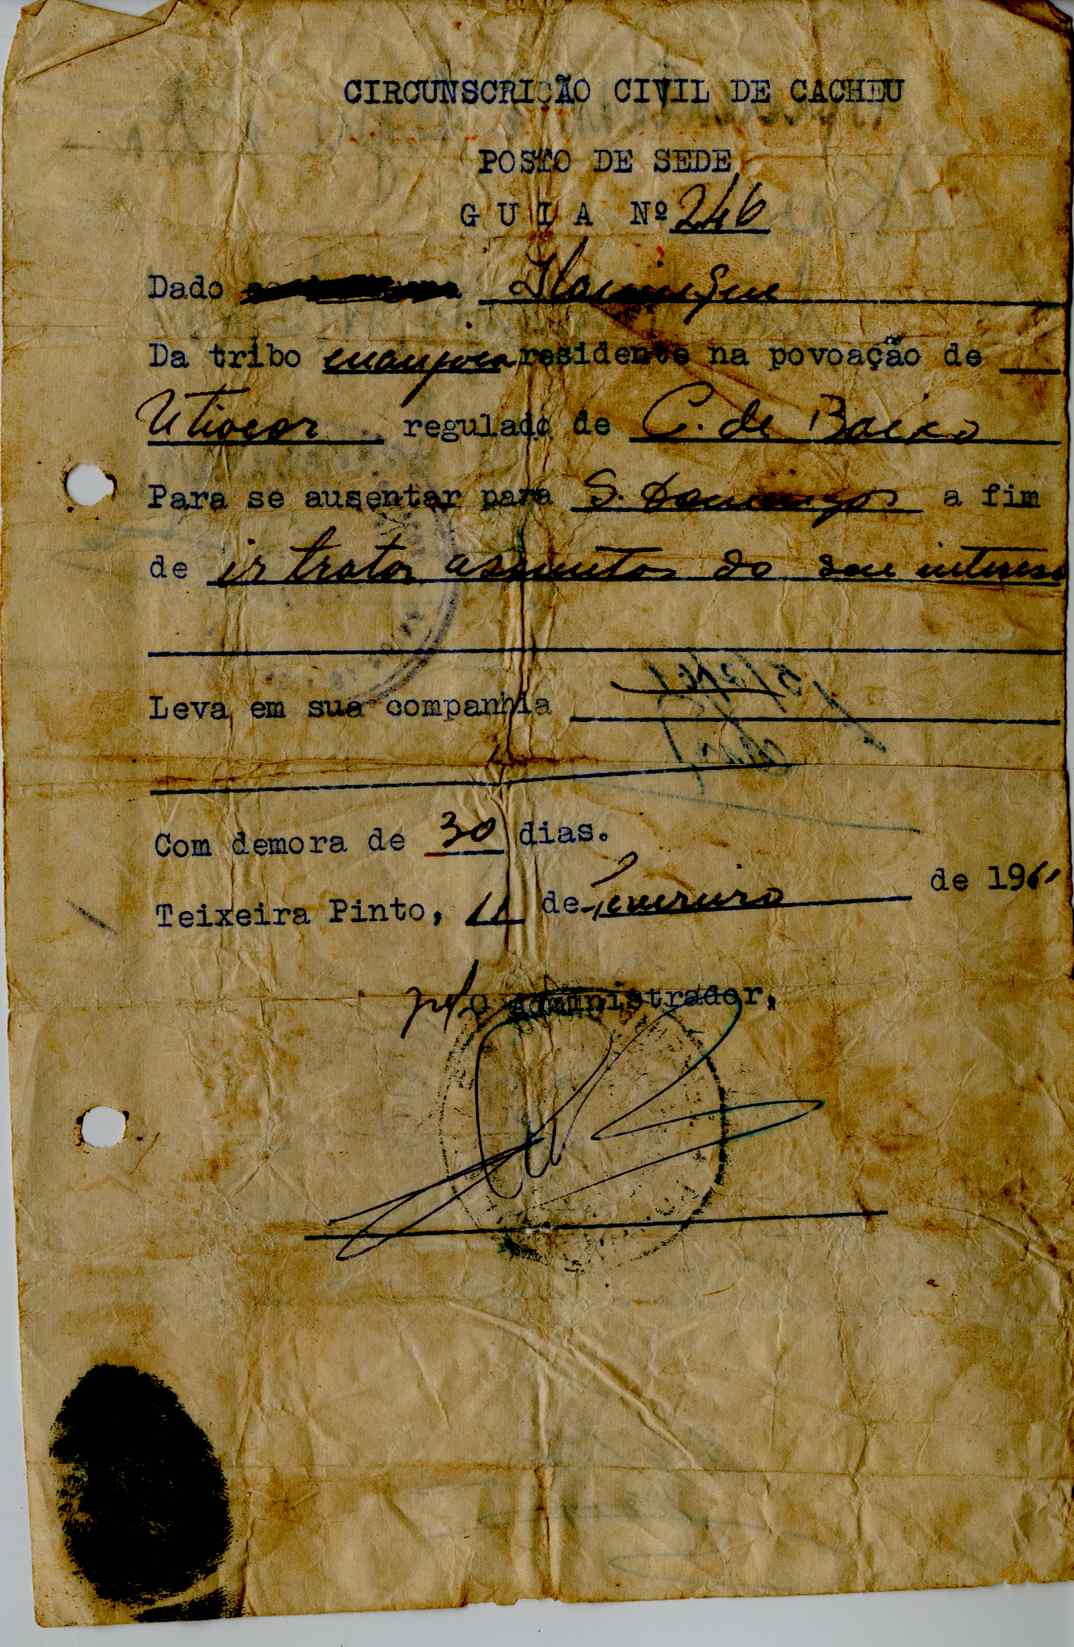 CIRCUNSCRIÇÃO CIVIL DE CACHEU
POSTO DE SEDE
G U I A Nº 246
Dado
Da tribo residente na povoação de
regulado de C. de Baixo
Para se ausentar para S. Domingos a fim
de ir tratar assuntos do seu interesse
Leva em sua companhia
Com demora de 30 dias.
Teixeira Pinto, 11 de Fevereiro de 1961
O Administrador,